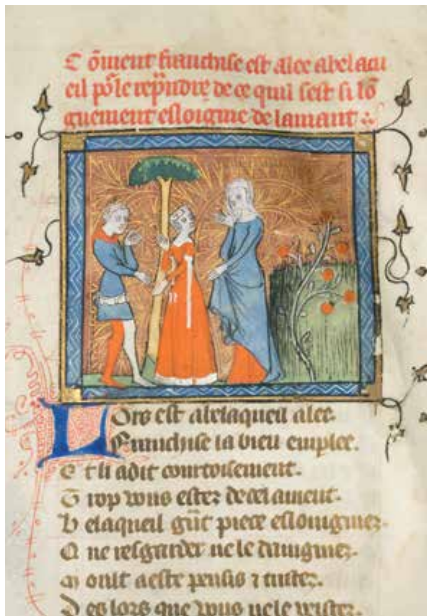 Cōment franchise est alee abelacu
eil pōr le rep̄ndre de ce quil sest si lō
guement esloigne de lamant
Lors est abelaqueil alee.
Franchise la bien emplee.
Et li a dit courtoisement.
Trop vous estez de cel ament.
Belaqueil g̃nt piece eslongniez.
Q ne resgarder ne le daingniez.
Moult a este pensis ⁊ tristes.
Des lors que vous ne le veistes.